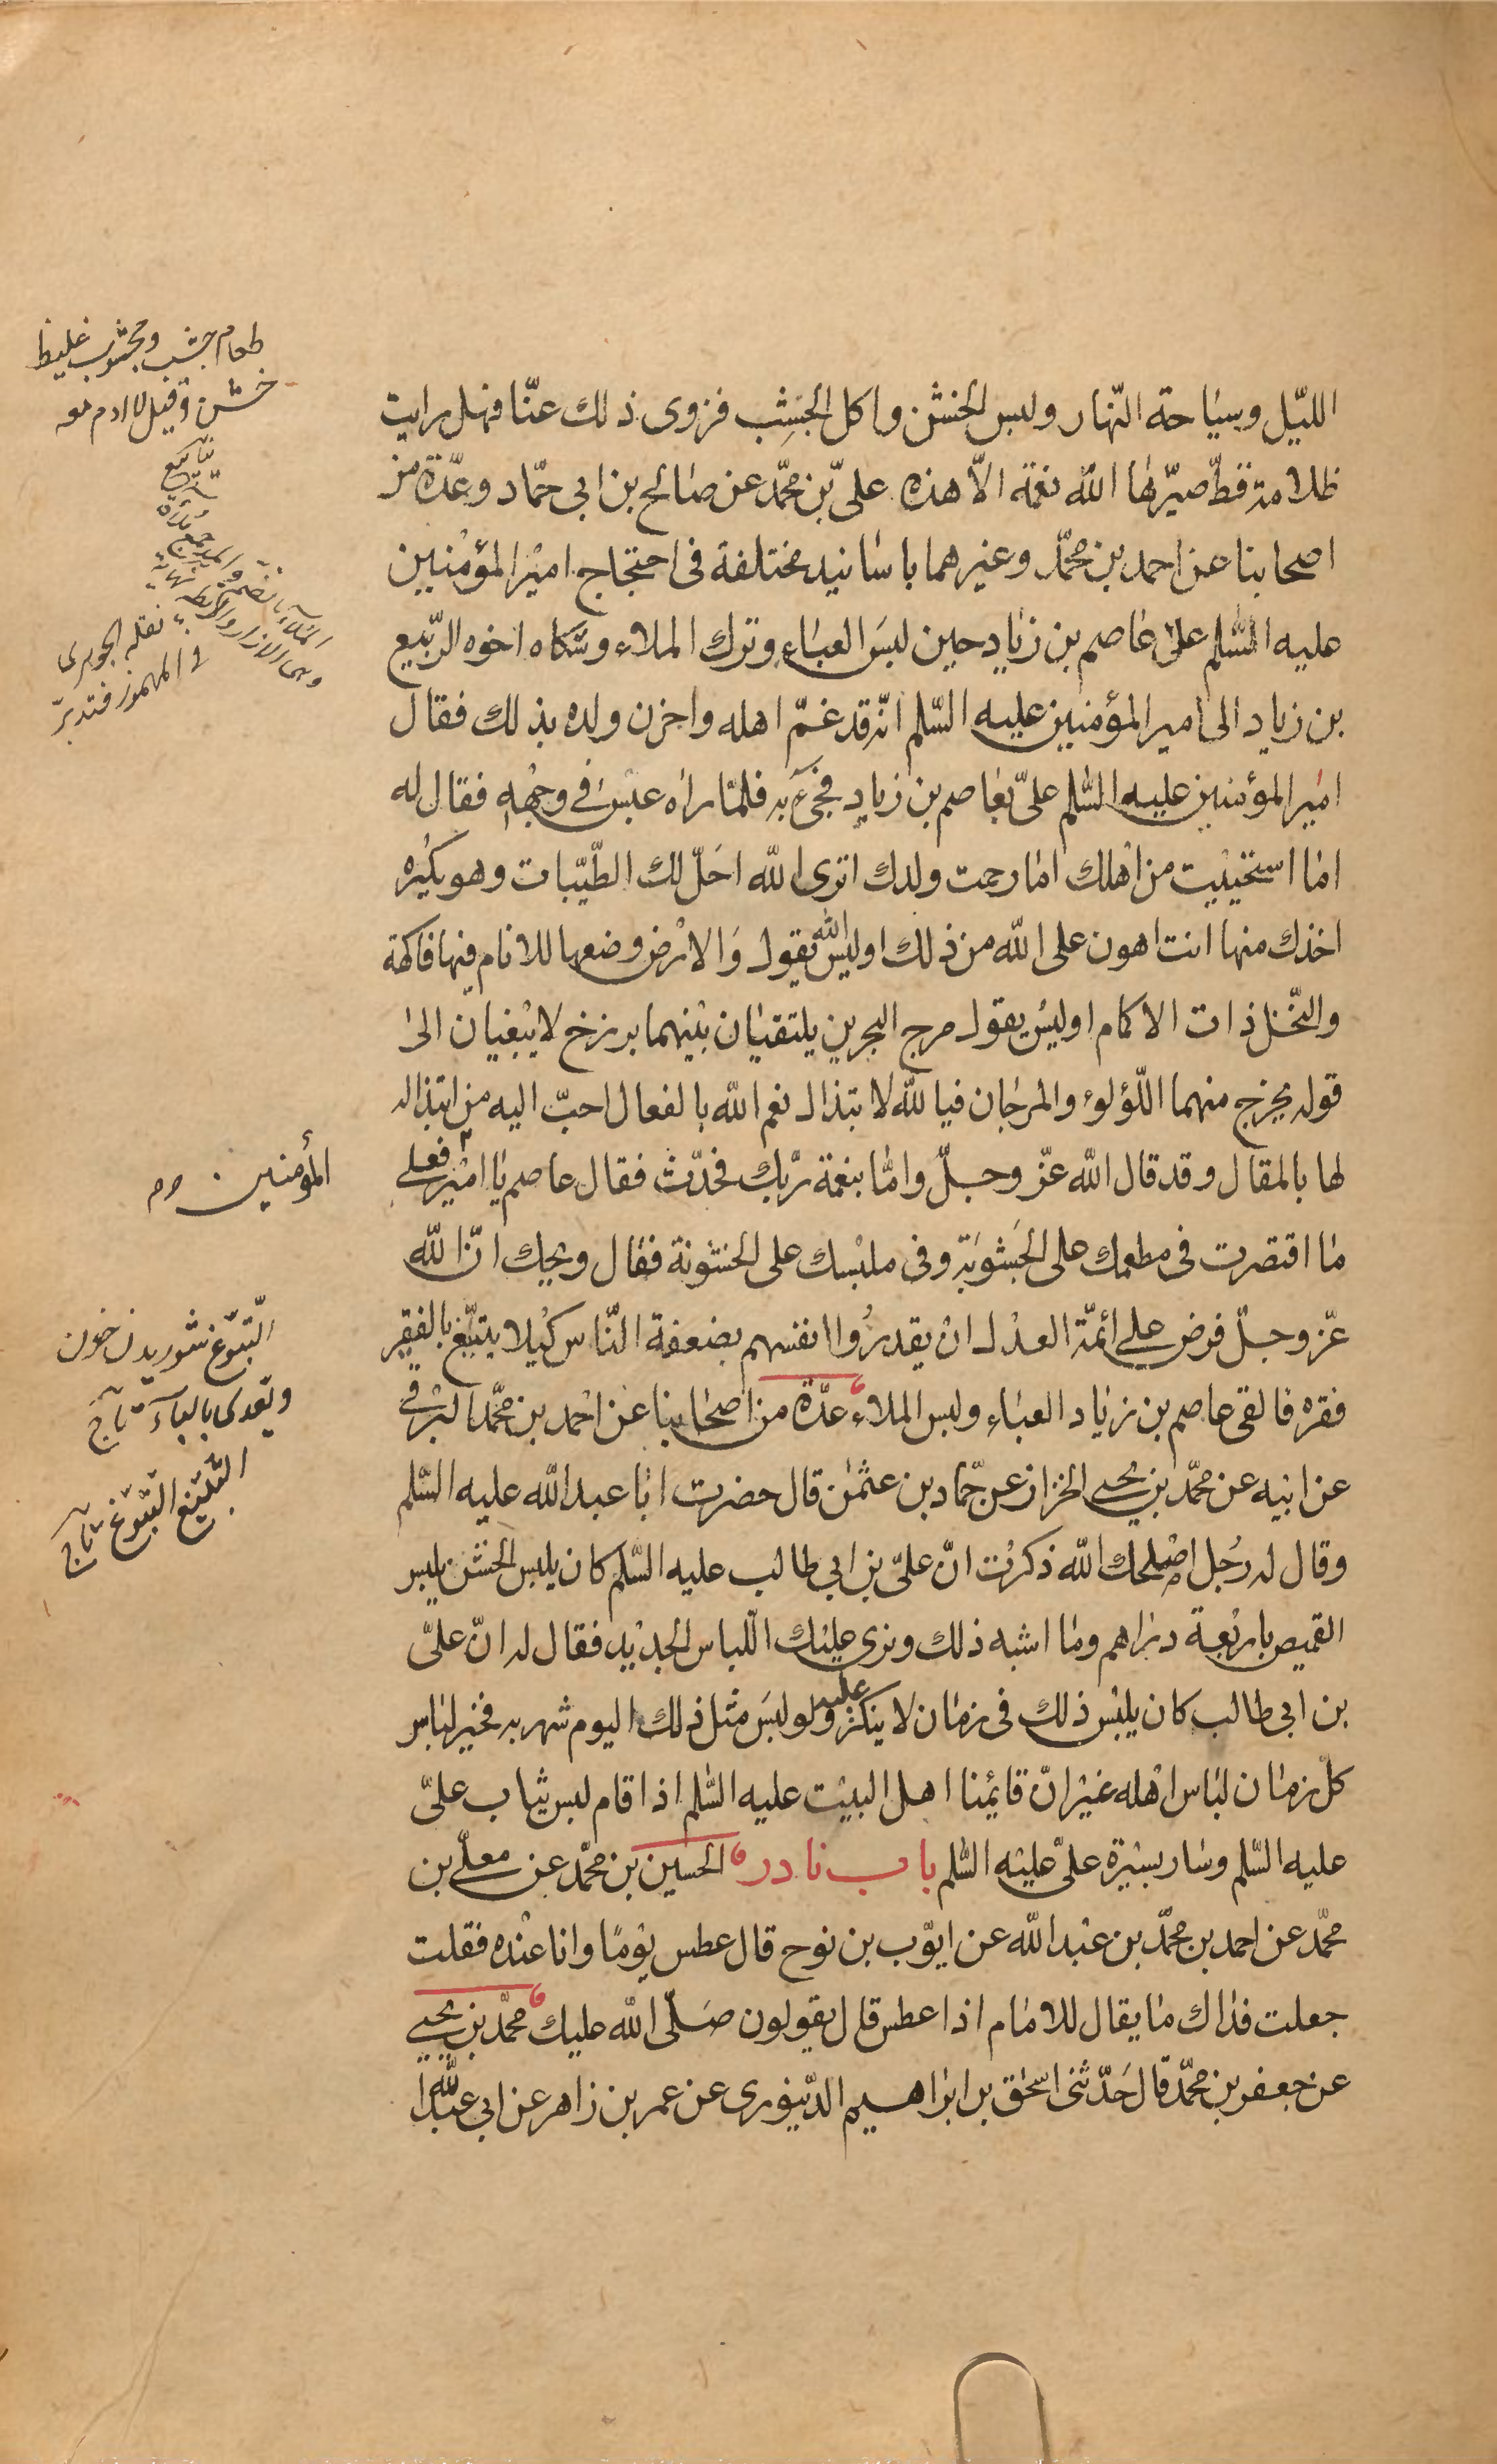 الليّل وسيَاحة النّهار ولبس الخشن واكل الجَشِب فزوى ذلك عنّا فهل رايت
ظلامة قطّ صيّرها اللّه نعمة الّا هذه علىّ بن محمّد عن صَالح بن ابى حمّاد وعِدّة من
اصحابنا عن احمد بن محمّد وغيرهما باسَانيد مختلفة فى احتجاج اميْر المؤمنين
عليه السّلم علىٰ عَاصم بن زيَاد حين لبسَ العبَاء وترك الملاء وشكاه اخوه الرّبيع
بن زياد الى امير المؤمنين عليه السّلم انّه قد غمّ اهله واحزن ولده بذلك فقال
اميْر المؤمنين عليه السّلم علىّ بعَاصم بن زياد فجىَ به فلمّا راٰه عبَسَ فى وجْههِ فقال له
امَا استحييْت من اهْلك امَا رحمت ولدك اترى اللّه احَلّ لك الطّيّبات وهو يكْره
اخذك منها انت اهون على اللّه من ذلك اوليس اللّه يقول وَالارْض وضعها للانام فيْها فاكهة
والنّخل ذات الاكمام اوليس يقول مرج البحرين يلتقيَان بيْنهما برزخ لا يبْغيان الىٰ
قوله يخرج منهما اللّؤلؤ والمرجَان فبا للّه لابتذال نعم اللّه بالفعال احبّ اليه من ابتذاله
لها بالمقال وقد قال اللّه عزّ وجلّ وامَّا بنعْمة ربّك فحَدّث فقال عاصم يَا اميْر فعلى
المؤمنين
مَا اقتصرت فى مطعمك على الجَشوبَة وفى ملبْسك على الخشونة فقال ويحك انّ اللّه
عزّ وجلّ فرض على ائمّة العدْل ان يقدرُوا انفسهم بضعفة النّاس كيْلا يتبيّغ بالفقير
فقره فالقى عاصم بن زيَاد العبَاء ولبس الملاء عدّة من اصحَابنا عن احْمد بن محمّد البرْقى
عن ابيْه عن محمّد بن يحيى الخزاز عن حمّاد بن عثمٰن قال حضرت ابَا عبد اللّه عليه السّلم
وقال له رجُل اصْلحك اللّه ذكرْت انّ علىّ بن ابى طالب عليه السّلم كان يلبس الخشن يلبس
القميص باربْعة دراهم ومَا اشبه ذلك ونرى عليْك اللّباس الجديْد فقال له انّ علىّ
بن ابى طالب كان يلبْس ذلك فى زمَان لا ينكر عليه ولو لبسَ مثل ذلك اليوم شهر به فخير لبَاس
كلّ زمَان لبَاس اهْله غيْر انّ قايمنا اهل البيْت عليه السّلم اذا قام لبس ثيَاب علىّ
عليه السّلم وسَار بسيْرة علىّ عليْه السّلم باب نادر الحسَين بن محمّد عن معلّى بن
محمّد عن احمد بن محمّد بن عبْد اللّه عن ايّوب بن نوح قال عطس يوْمًا وانا عنْده فقلت
جعلت فدَاك مَا يقال للامَام اذا عطس قال يقولون صَلّى اللّه عليك محمّد بن يحيى
عن جعفر بن محمّد قال حَدّثنى اسحٰق بن ابرَاهيم الدّينورى عن عمر بن زاهر عن ابى عبد اللّه
طعام جشب ومجشوب غليظ
خشن وقيل لا ادم معه
نقله الجوهرى
فى المهموز فتدبّر
التّبوّغ شوريدن خون
وتعدى بالباء تاج
التّبيّغ التّبوّغ تاج